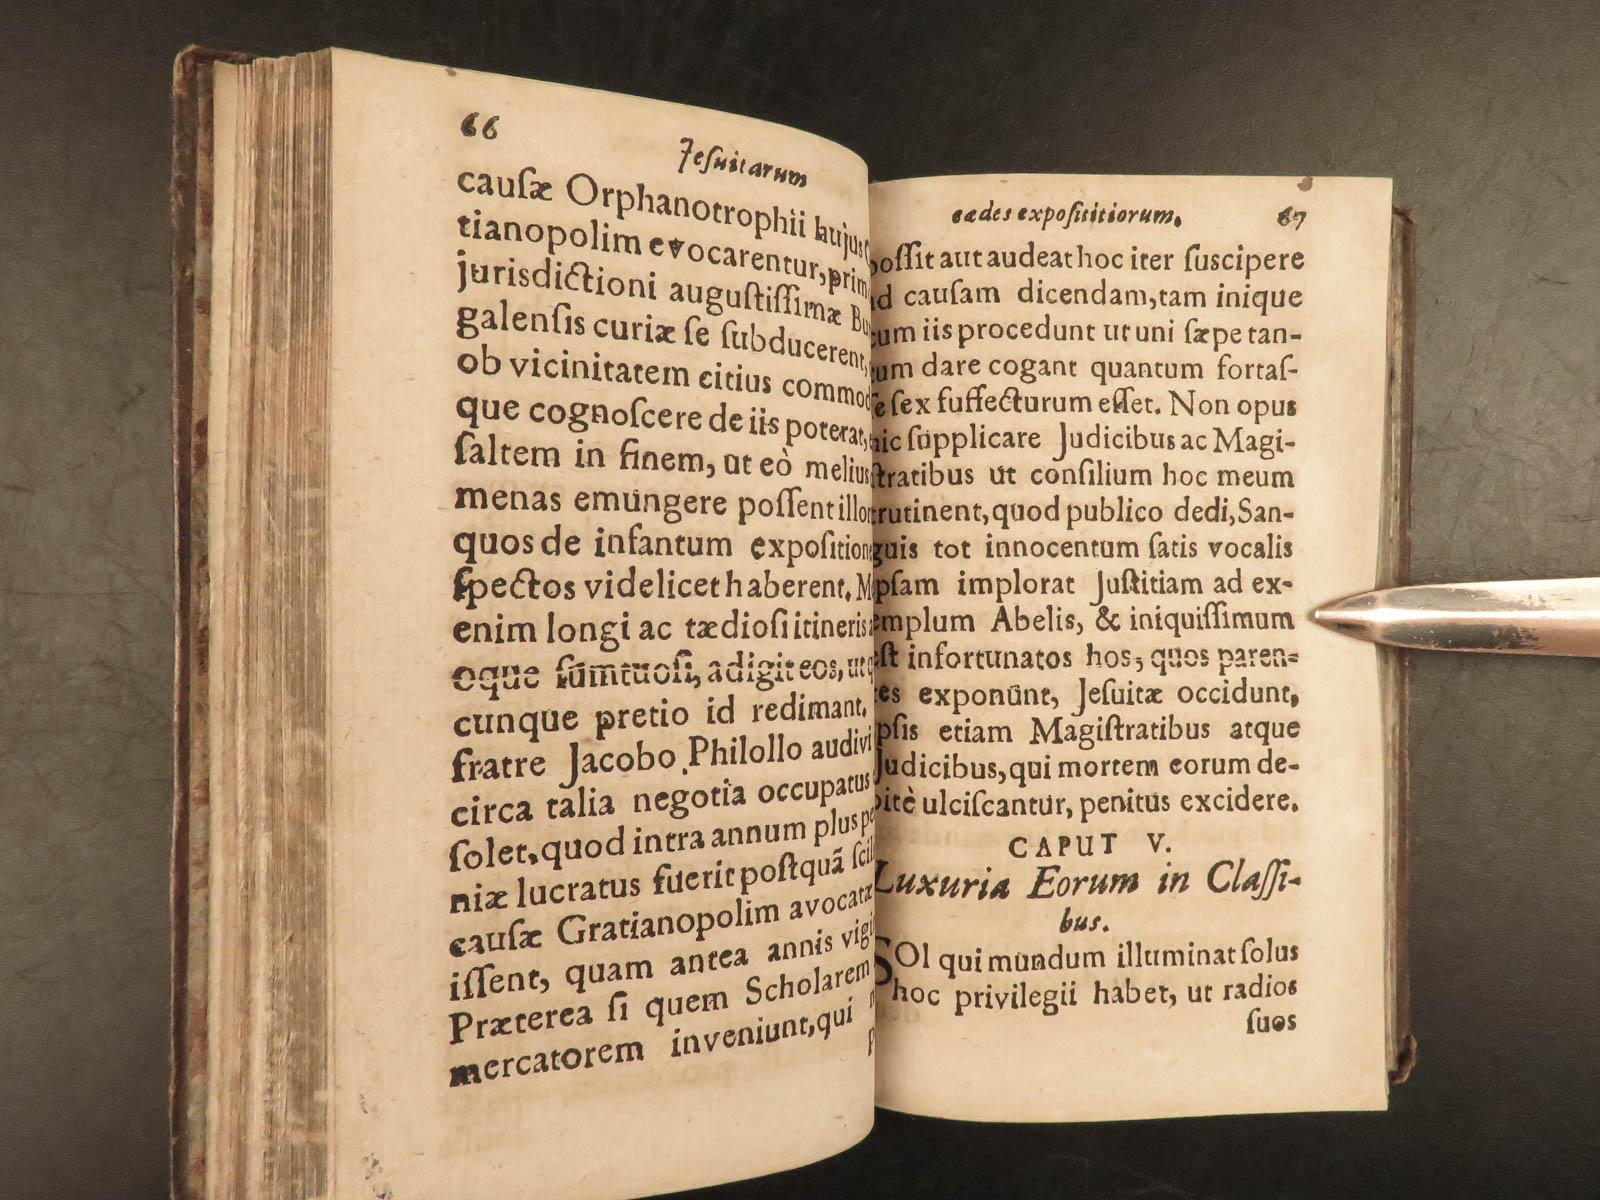 66
Jeſuitarum
cauſæ Orphanotrophii hujus
tianopolim evocarentur, prim
jurisdictioni auguſtiſſimæ Bu
galenſis curiæ ſe ſubducerent,
ob vicinitatem citius commod
que cognoſcere de iis poterat,
ſaltem in finem, ut eò melius
menas emungere poſſent illor
quos de infantum expoſition
ſpectos videlicet haberent. M
enim longi ac tædioſi itineris
oque ſumtuoſi, adigit eos, ut q
cunque pretio id redimant.
fratre Jacobo Philollo audivi
circa talia negotia occupatus
ſolet, quod intra annum plus pe
niæ lucratus fuerit poſtquã ſcil
cauſæ Gratianopolim avocatæ
iſſent, quam antea annis vigi
Præterea ſi quem Scholarem
mercatorem inveniunt, qui
cædes expoſititiorum.
67
poſſit aut audeat hoc iter ſuscipere
ad cauſam dicendam, tam inique
cum iis procedunt ut uni ſæpe tan-
tum dare cogant quantum fortaſ-
ſe ſex ſuffecturum eſſet. Non opus
hic ſupplicare Judicibus ac Magi-
ſtratibus ut conſilium hoc meum
ſcrutinent, quod publico dedi, San-
guis tot innocentum ſatis vocalis
ipſam implorat Juſtitiam ad ex-
emplum Abelis, & iniquiſſimum
eſt infortunatos hos, quos paren-
tes exponunt, Jeſuitæ occidunt,
ipſis etiam Magiſtratibus atque
Judicibus, qui mortem eorum de-
bitè ulciſcantur, penitus excidere.
CAPUT V.
Luxuria Eorum in Claſſi-
bus.
SOl qui mundum illuminat ſolus
hoc privilegii habet, ut radios
ſuos